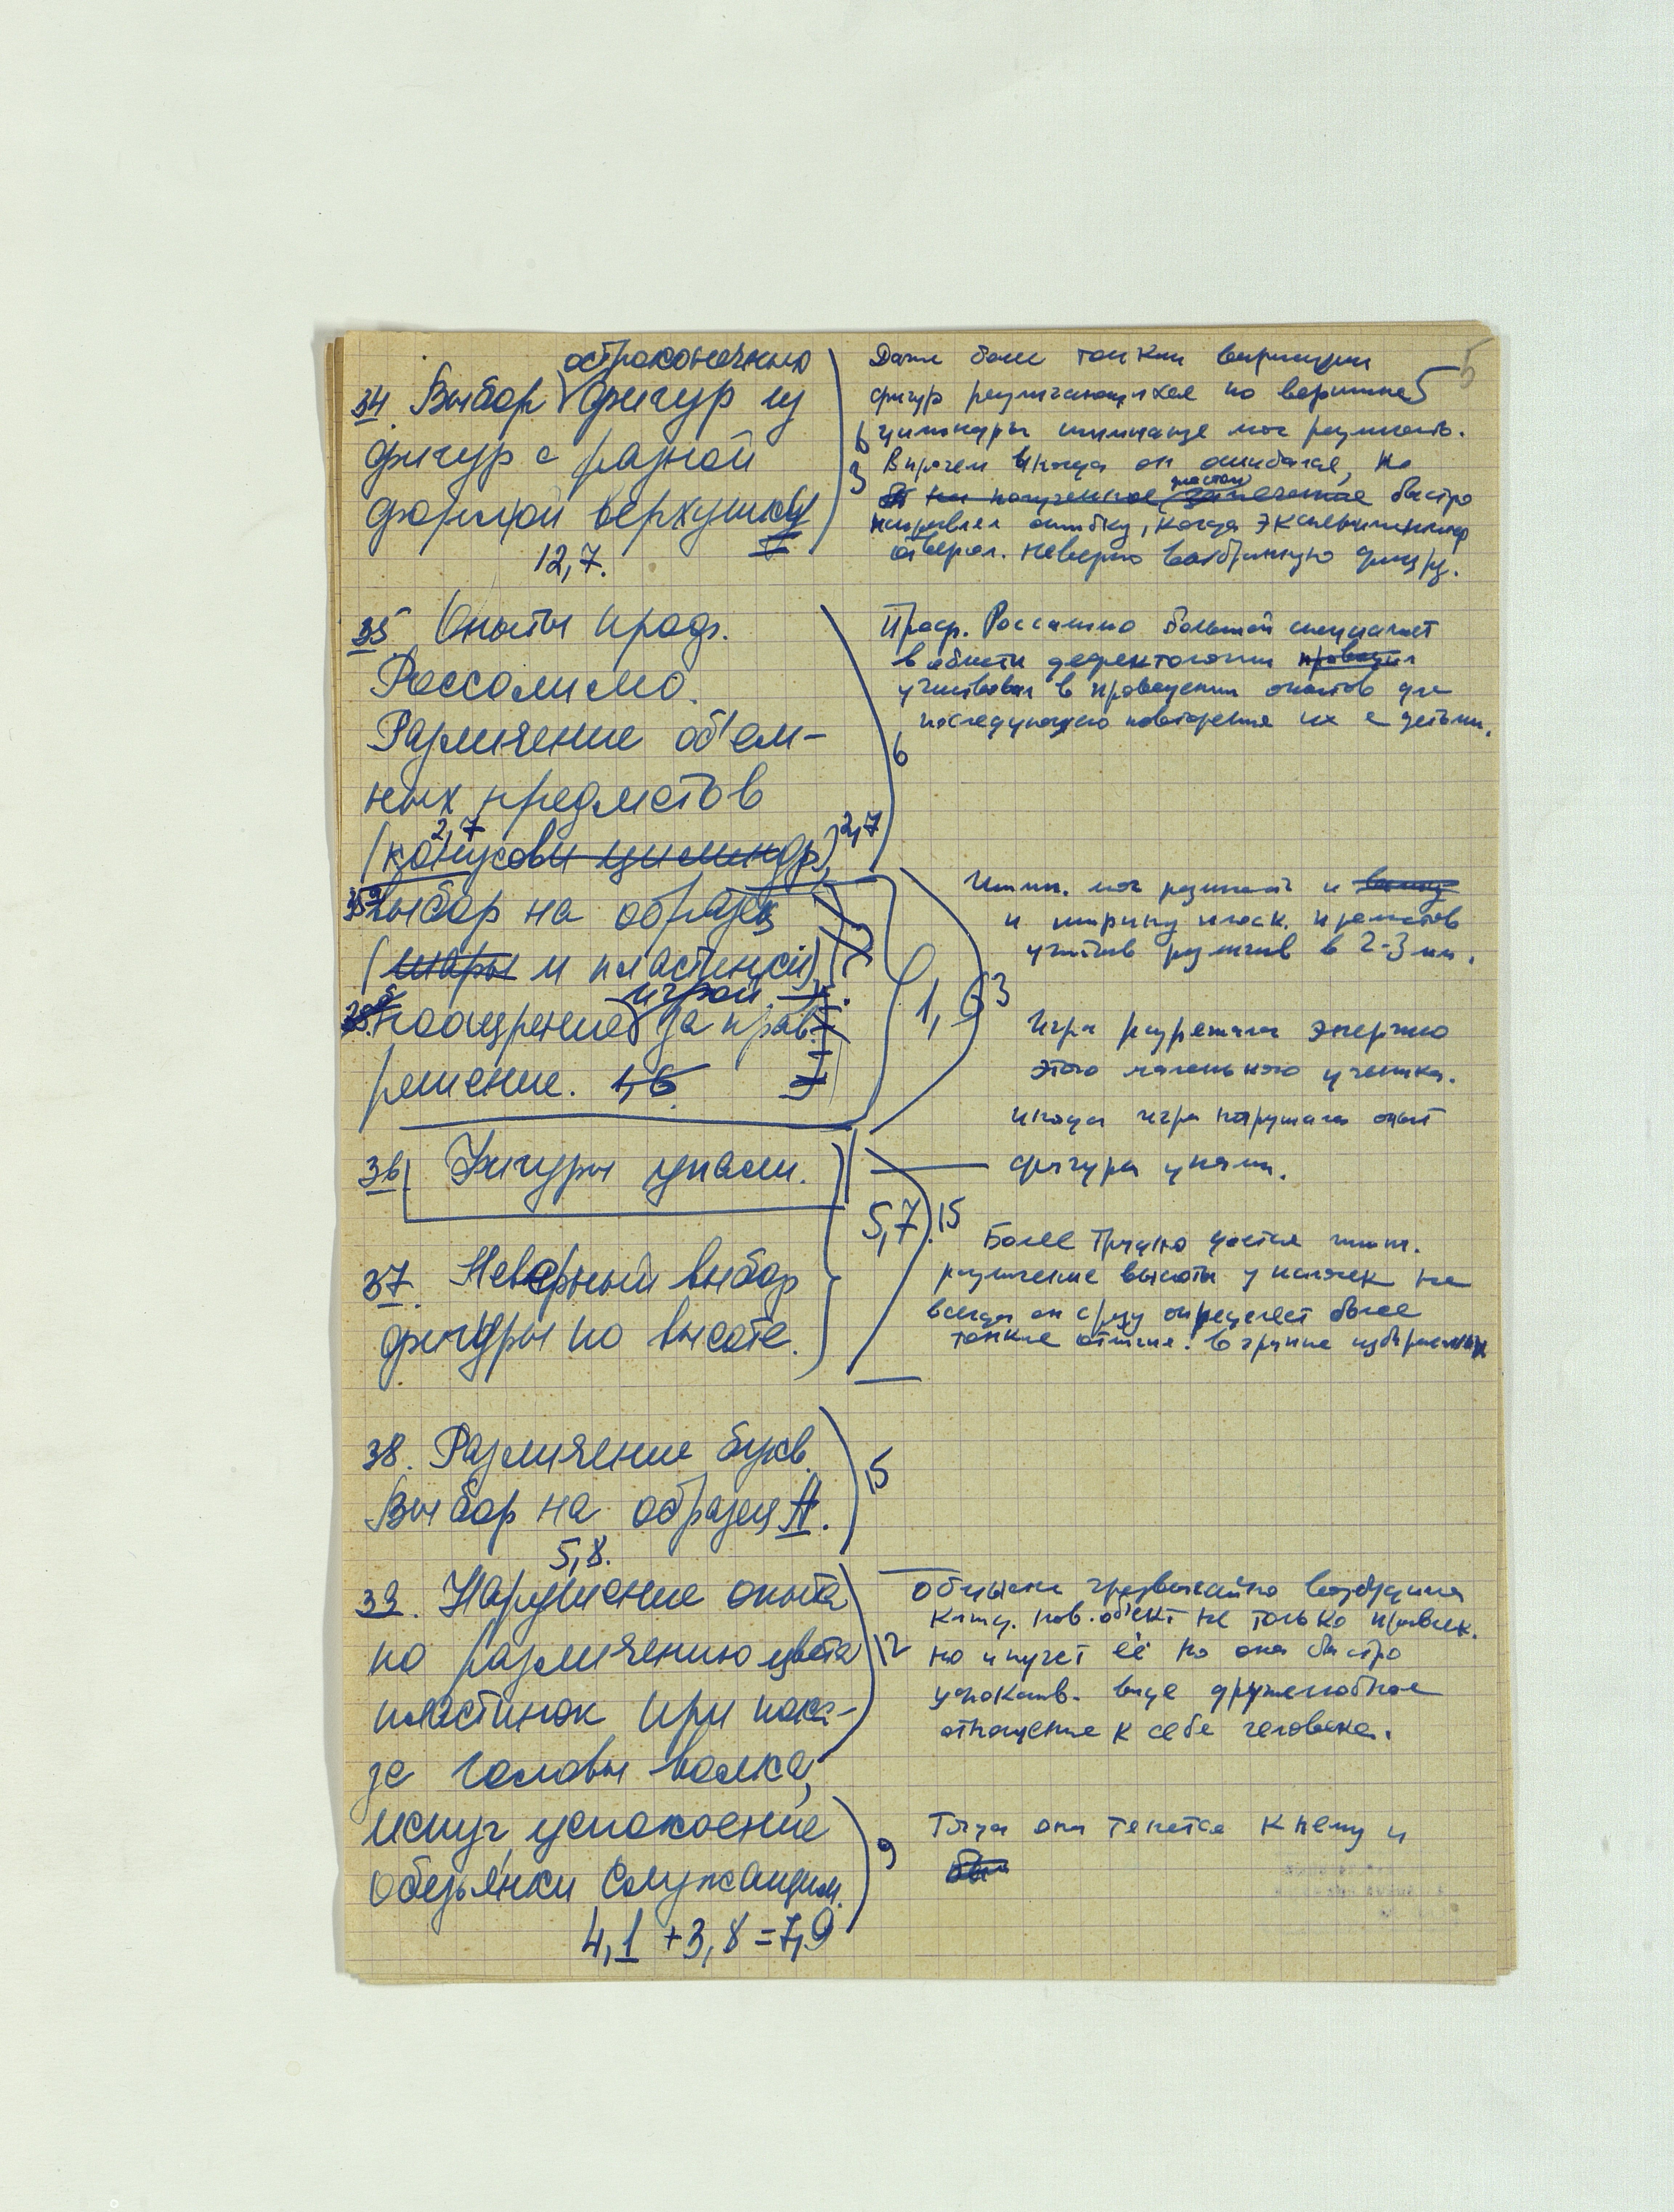 остроконечных
34 Выбор фигур из
фигур с разной
формой верхушки
12,7.
Даже более тонкие вариации
5
фигур различающихся по вершине
6 цилиндры шимпанзе мог различать.
3 Впрочем иногда он ошибался, но
быстро
исправлял ошибку, когда экспериментатор
отвергал. неверно выбранную фигуру.
35 Опыты проф.
Россолимо.
Различение объем-
ных предметов
2,7
(конусов и цилиндр) 2,7
6
Проф. Россолимо большой специалист
в области дефектологии проводил
участвовал в проведении опытов для
последующего повторения их с детьми.
35а Выбор на образец
(шары и пластинки)
игрой
поощрение за прав.
решение. 1,6
1,6
3
Шимп. мог различать и
и ширину плоск. предметов
учитыв различие в 2-3 мм.
Игра разрежала энергию
этого маленького ученика.
Иногда игра нарушала опыт
36 Фигуры упали.
фигуры упали.
5,7 15
37. Неверный выбор
фигуры по высоте.
Более трудно дается шимп.
различение высоты у палочек не
всегда он сразу определяет более
тонкие отличия. в группе избираемых
38. Различение букв.
Выбор на образец А.
5,8.
15
39. Нарушение опыта
по различению цвета
пластинок при пока-
зе головы волка,
испуг, успокоение
обезьянки служащим.
4,1 + 3,8 = 7,9
12
Обезьяна чрезвычайно возбудима
Кажд. нов. объект не только привлек.
но и пугает её но она быстро
успокаив. видя дружелюбное
отношение к себе человека.
9
Тогда она тянется к нему и